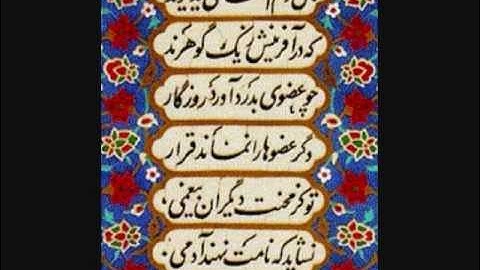 که در آفرینش ز یک گوهرند
چو عضوی بدرد آورد روزگار
دگر عضوها را نماند قرار
تو کز محنت دیگران بیغمی،
نشاید که نامت نهند آدمی.